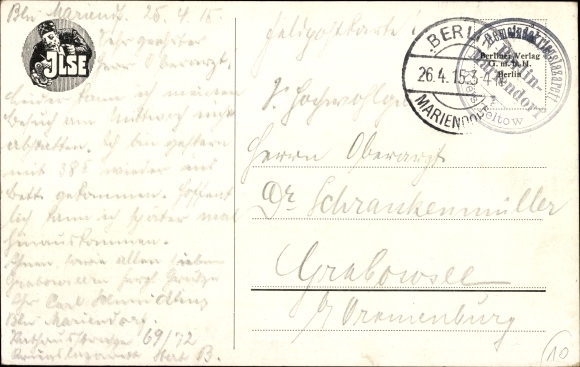 Bln Mariend. 25.4.15.
Sehr geehrter
Herr Oberarzt.
leider kann ich meinen
Besuch am Mittwoch nicht
abstatten. Ich bin gestern
mit 38⁵ wieder ins
Bett gekommen. Hoffent
lich kann ich später mal
hinauskommen.
Ihnen sowie allen lieben
Grabowseern herzl Grüße
Ihr Carl
Bln Mariendorf.
Rathausstrasse 69/72
B.
JLSE
Feldpostkarte!
BERLIN
26.4.15.3-4
MARIENDORF
Berliner Verlag
G.m.b.H.
Berlin
Berlin-
Mariendorf
Kreis Teltow
S. Hochwohlgeb
Herrn Oberarzt
Dr Schrankenmüller
Grabowsee
b/ Oranienburg
10